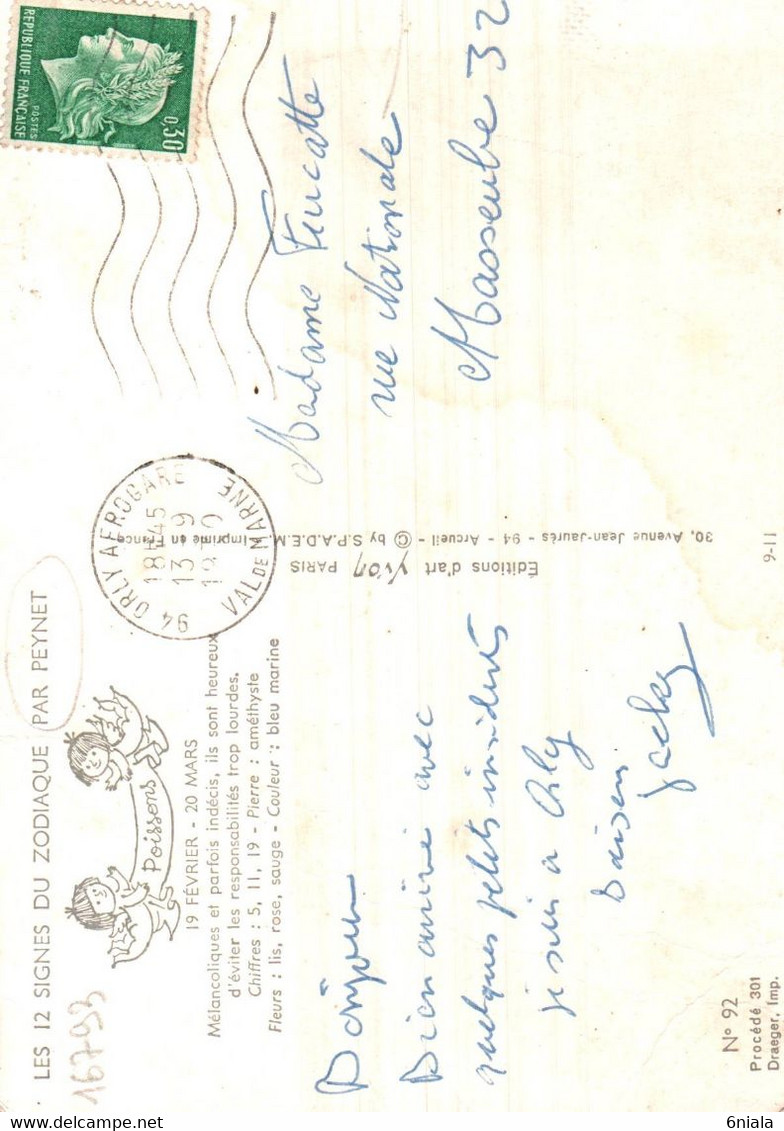 LES 12 SIGNES DU ZODIAQUE PAR PEYNET
16793
Poissons
19 FÉVRIER - 20 MARS
Mélancoliques et parfois indécis, ils sont heureux
d'éviter les responsabilités trop lourdes.
Chiffres : 5, 11, 19 - Pierre : améthyste
Fleurs : lis, rose, sauge - Couleur : bleu marine
Bonjour
Bien arrivé avec
quelques petits incidents
je suis a Orly
Baisers
Jacky
N° 92
Procédé 301
Draeger, Imp.
Éditions d'art Yvon PARIS
30, Avenue Jean-Jaurès - 94 - Arcueil - © by S.P.A.D.E.M. - Imprimé en France
9-11
94 ORLY AEROGARE
18H45
13 - 9
VAL DE MARNE
REPUBLIQUE FRANÇAISE
POSTES
0,30
Madame Fourcatte
rue Nationale
Masseube 32
6niala